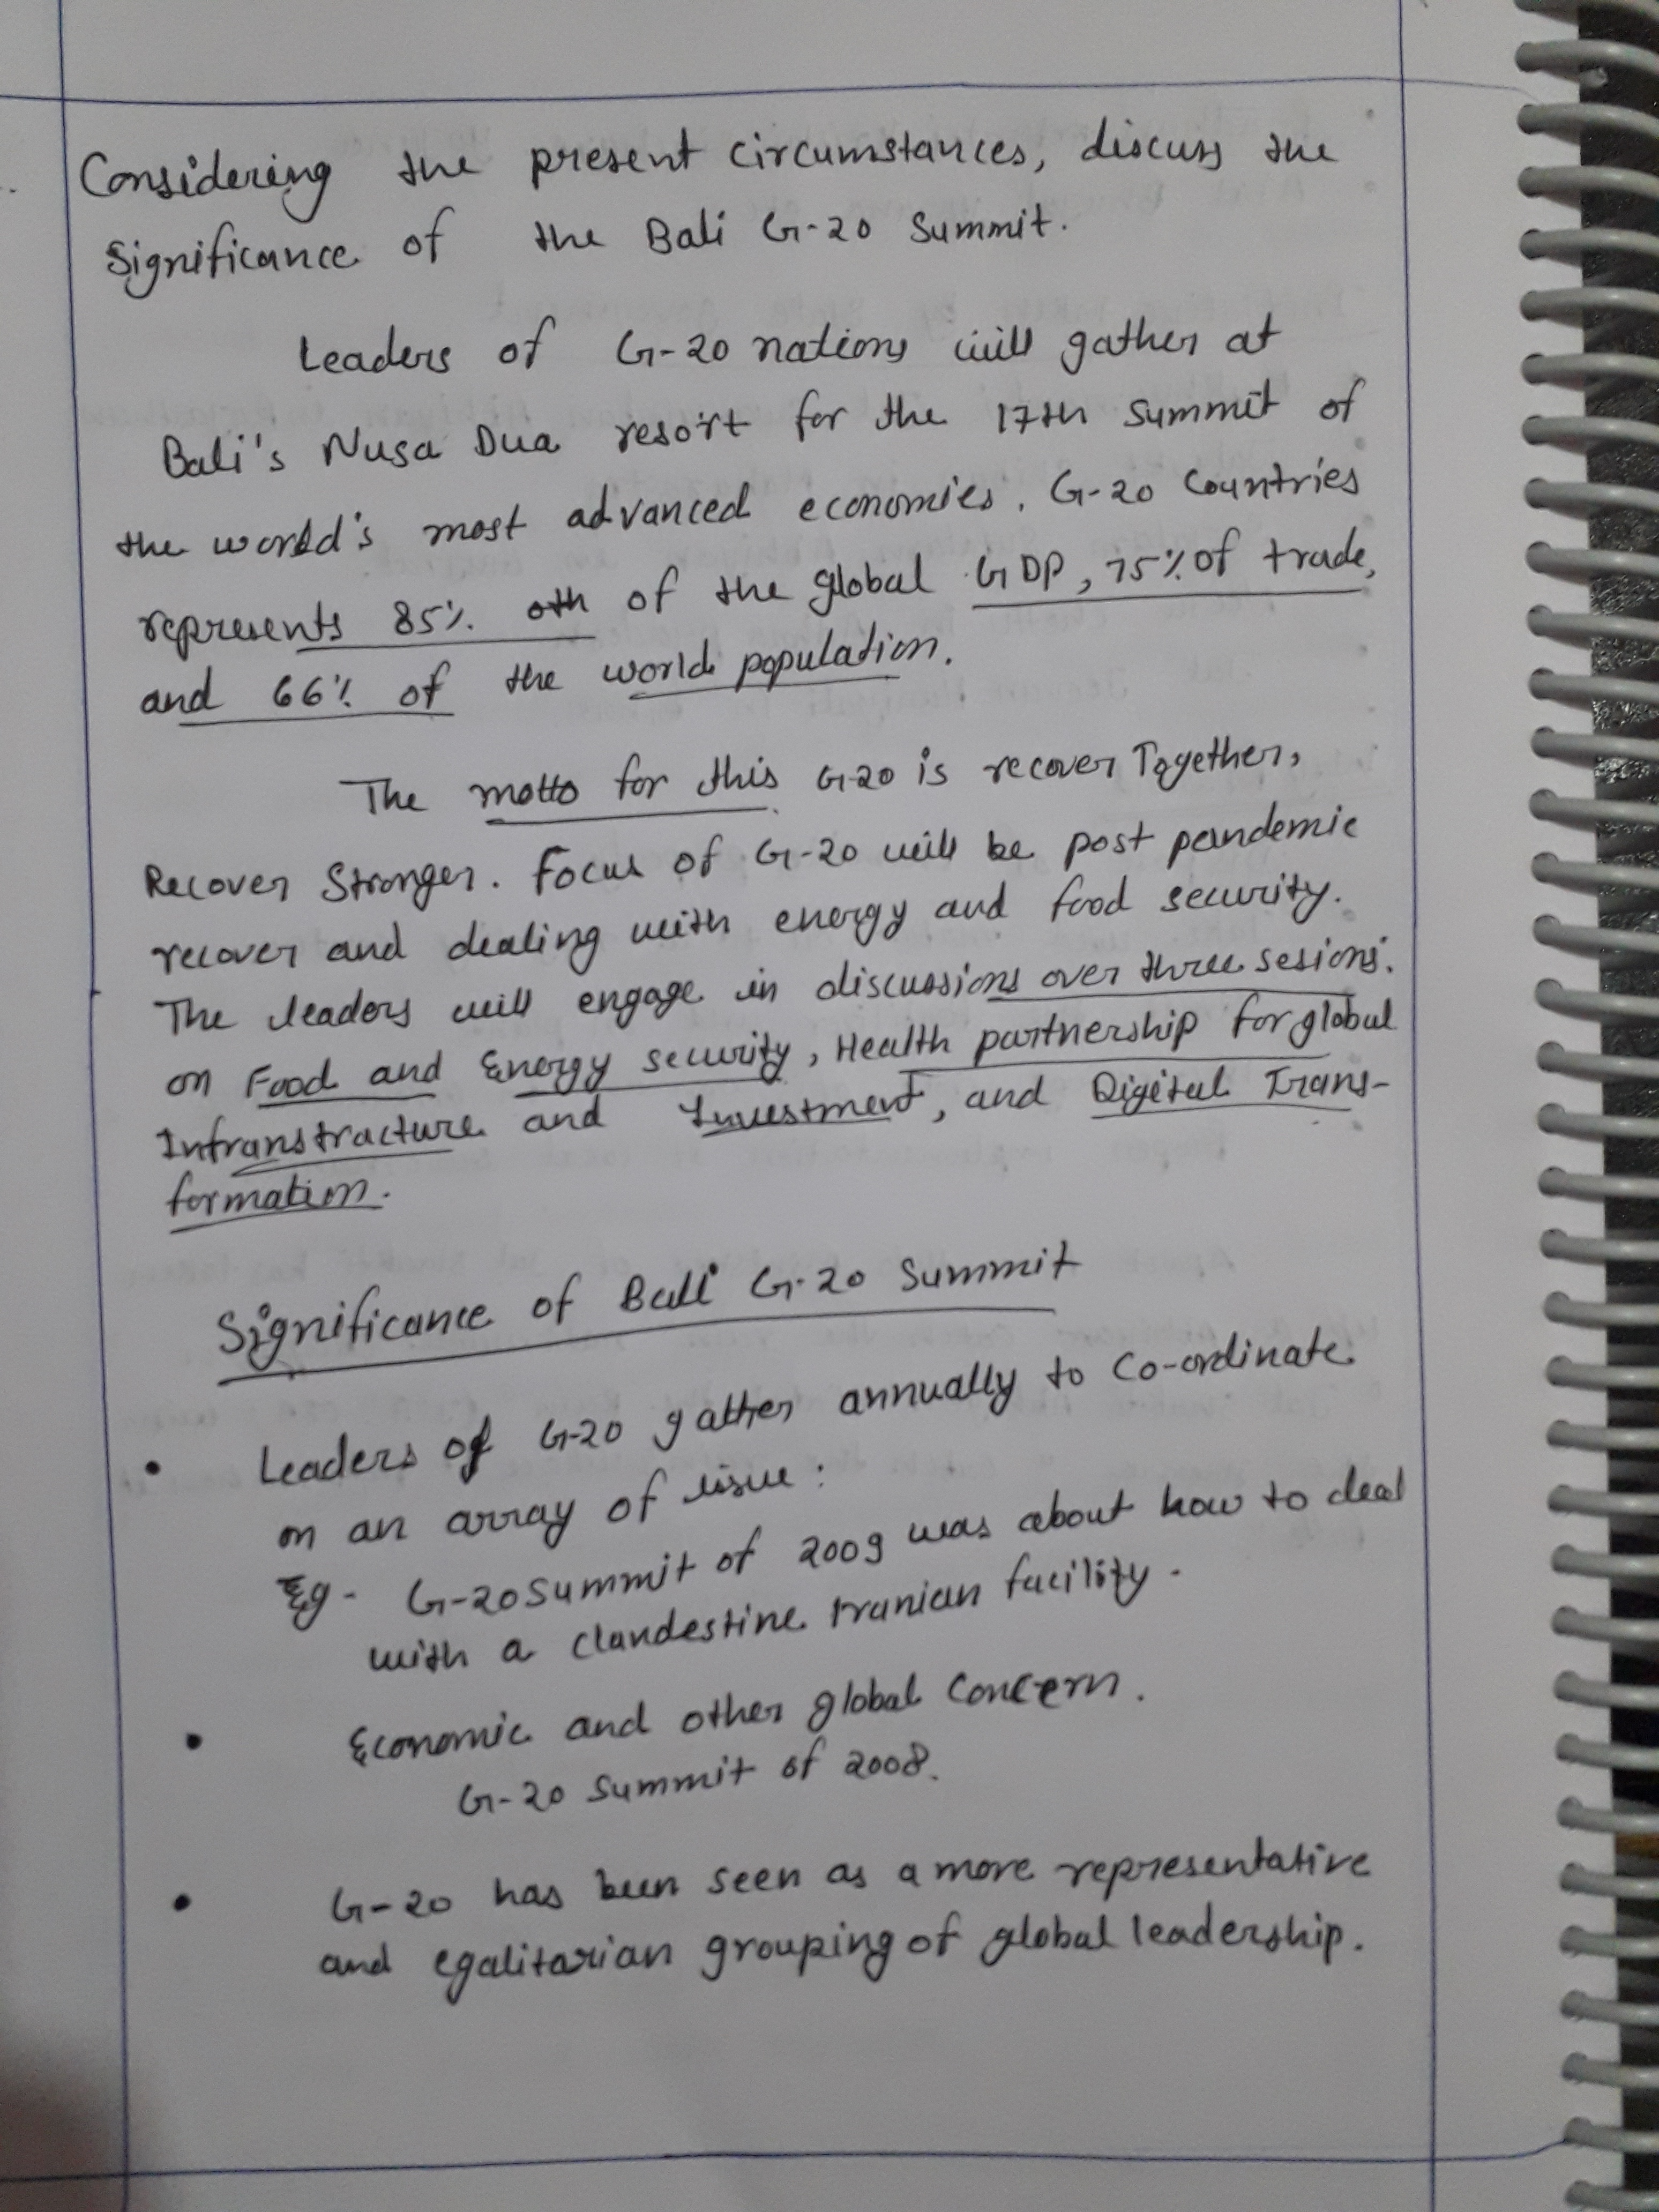 Considering the present circumstances, discuss the
significance of the Bali G-20 summit.
Leaders of G-20 nations will gather at
Bali's Nusa Dua resort for the 17th summit of
the world's most advanced economies. G-20 Countries
represents 85% oth of the global GDP, 75% of trade,
and 66% of the world population.
The motto for this G-20 is recover Together,
Recover Stronger. Focus of G-20 will be post pandemic
recover and dealing with energy and food security.
The leaders will engage in discussions over three sesions.
on Food and Energy security, Health partnership for global
Infranstracture and Investment, and Digital Trans-
formation.
Significance of Bali G-20 Summit
• Leaders of G-20 gather annually to Co-ordinate
on an array of issue :
Eg - G-20 Summit of 2009 was about how to deal
with a clandestine Iranian facility.
• Economic and other global Concern.
G-20 Summit of 2008.
• G-20 has been seen as a more representative
and egalitarian grouping of global leadership.